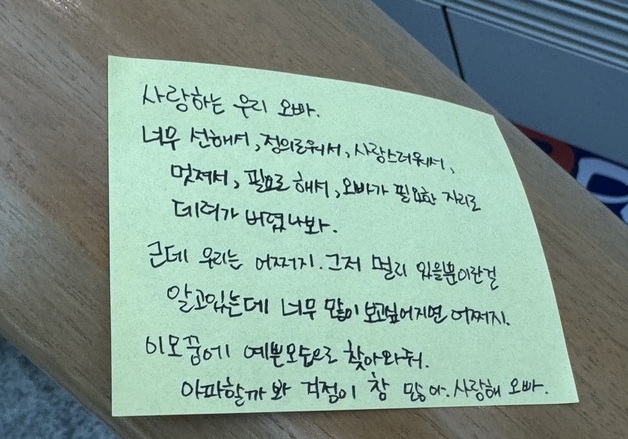 사랑하는 우리 오빠.
너무 선해서, 정의로워서, 사랑스러워서,
멋져서, 필요로 해서, 오빠가 필요한 자리로
데려가 버렸나봐.
근데 우리는 어쩌지. 그저 멀리 있을뿐이란걸
알고있는데 너무 많이 보고싶어지면 어쩌지.
이모꿈에 예쁜모습으로 찾아와줘.
아파할까 봐 걱정이 참 많아. 사랑해 오빠.